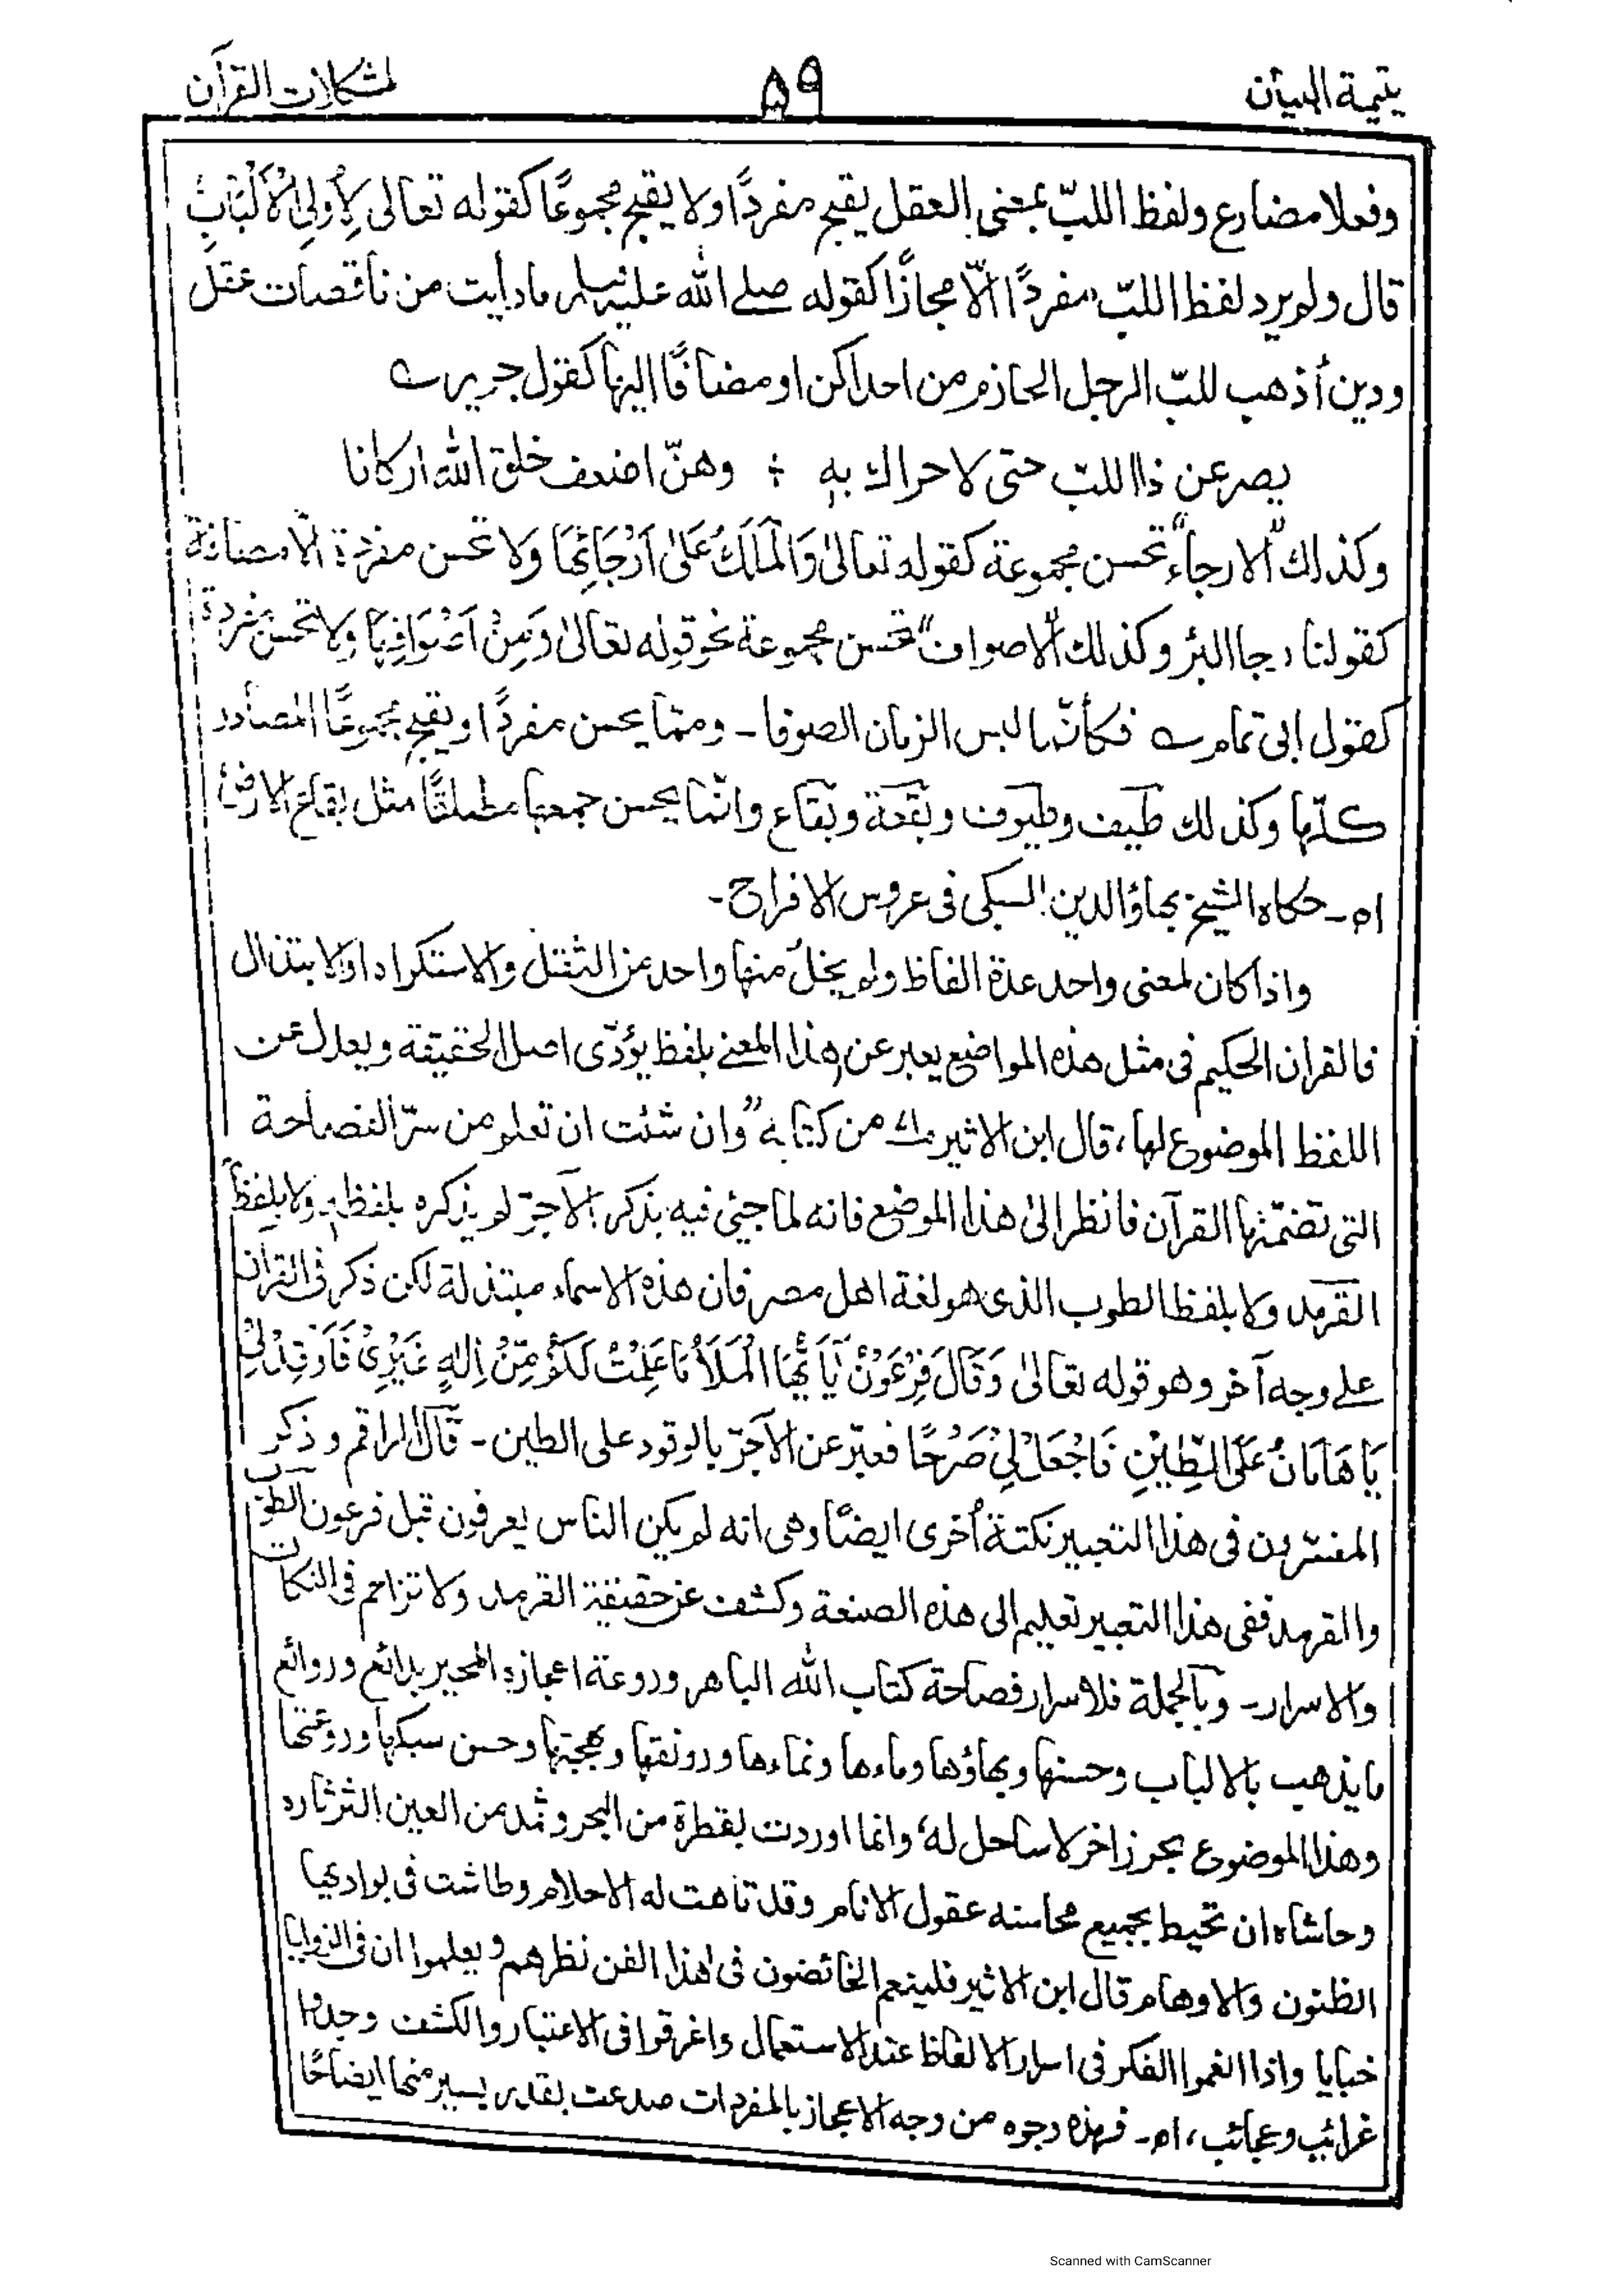 يتيمة البيان
٥٩
لمشكلات القرآن
وفعلا مضارع ولفظ اللبّ بمعنى العقل يقبح مفردًا ولا يقبح مجموعًا كقوله تعالى لِأُولِي الْأَلْبَابِ
قال ولم يرد لفظ اللبّ مفردًا الّا مجازًا كقوله صلے الله عليه وسلم ما رأيت من ناقصات عقل
ودين أذهب للبّ الرجل الحازم من احداكن او مضافًا اليها كقول جرير ے
يصرعن ذا اللب حتى لا حراك به ؞ وهنّ اضعف خلق الله اركانا
وكذلك "الارجاء" تحسن مجموعة كقوله تعالىٰ وَالْمَلَكُ عَلىٰ اَرْجَائِهَا ولا تحسن مفردة الّا مضافة
كقولنا رجا البئر وكذلك "الاصواف" تحسن مجموعة نحو قوله تعالىٰ وَمِنْ اَصْوَافِهَا ولا تحسن مفردة
كقول ابى تمام ے فكأنّما لبس الزمان الصوفا ـ وممّا يحسن مفردًا ويقبح مجموعًا المصادر
كلّها وكذلك طيف وطيوف وبقعة وبقاع وانّما يحسن جمعها مطلقًا مثل بقاع الارض
اه ـ حكاه الشيخ بهاؤ الدين السبكى فى عروس الافراح ـ
واذا كان لمعنى واحد عدة الفاظ ولم يخل منها واحد من الثقل والاستكراه او الابتذال
فالقرآن الحكيم فى مثل هذه المواضع يعبر عن هذا المعنے بلفظ يؤدّى اصل الحقيقة ويعدل عن
اللفظ الموضوع لها، قال ابن الاثير من كتابه "وان شئت ان تعلم من سرّ الفصاحة
التى تضمّنها القرآن فانظر الىٰ هذا الموضع فانه لما جئ فيه بذكر الآجرّ لم يذكره بلفظه ولا بلفظ
القرمد ولا بلفظ الطوب الذى هو لغة اهل مصر فان هذه الاسماء مبتذلة لكن ذكر فى القرآن
علے وجه آخر وهو قوله تعالىٰ وَقَالَ فِرْعَوْنُ يَا اَيُّهَا الْمَلَأُ مَا عَلِمْتُ لَكُمْ مِّنْ اِلٰهٍ غَيْرِىْ فَاَوْقِدْ لِىْ
يَا هَامَانُ عَلَى الطِّيْنِ فَاجْعَلْ لِىْ صَرْحًا فعبّر عن الآجرّ بالوقود على الطين ـ قال الراقم وذكر
المفسّرون فى هذا التعبير نكتة أُخرى ايضًا وهى انه لم يكن الناس يعرفون قبل فرعون الطوب
والقرمد ففى هذا التعبير تعليم الى هذه الصنعة وكشف عن حقيقة القرمد ولا تزاحم فى النكات
والاسرار ـ وبالجملة فلاسرار فصاحة كتاب الله الباهر وروعة اعجازه المحير بدائع وروائع
ما يذهب بالالباب وحسنها وبهاؤها وماءها ونماءها ورونقها وبهجتها وحسن سبكها وروعتها
وهذا الموضوع بحر زاخر لا ساحل له، وانما اوردت لقطرة من البحر وثمد من العين الثرثاره
وحاشاه ان تحيط بجميع محاسنه عقول الانام وقد تاهت له الاحلام وطاشت فى بواديها
الظنون والاوهام قال ابن الاثير فلينعم الخائضون فى هذا الفن نظرهم ويعلموا ان فى الزوايا
خبايا واذا انعموا الفكر فى اسرار الالفاظ عند الاستعمال واغرقوا فى الاعتبار والكشف وجدوا
غرائب وعجائب، اه ـ فهذه وجوه من وجه الاعجاز بالمفردات صدعت بقدر يسير منها ايضاحًا
Scanned with CamScanner